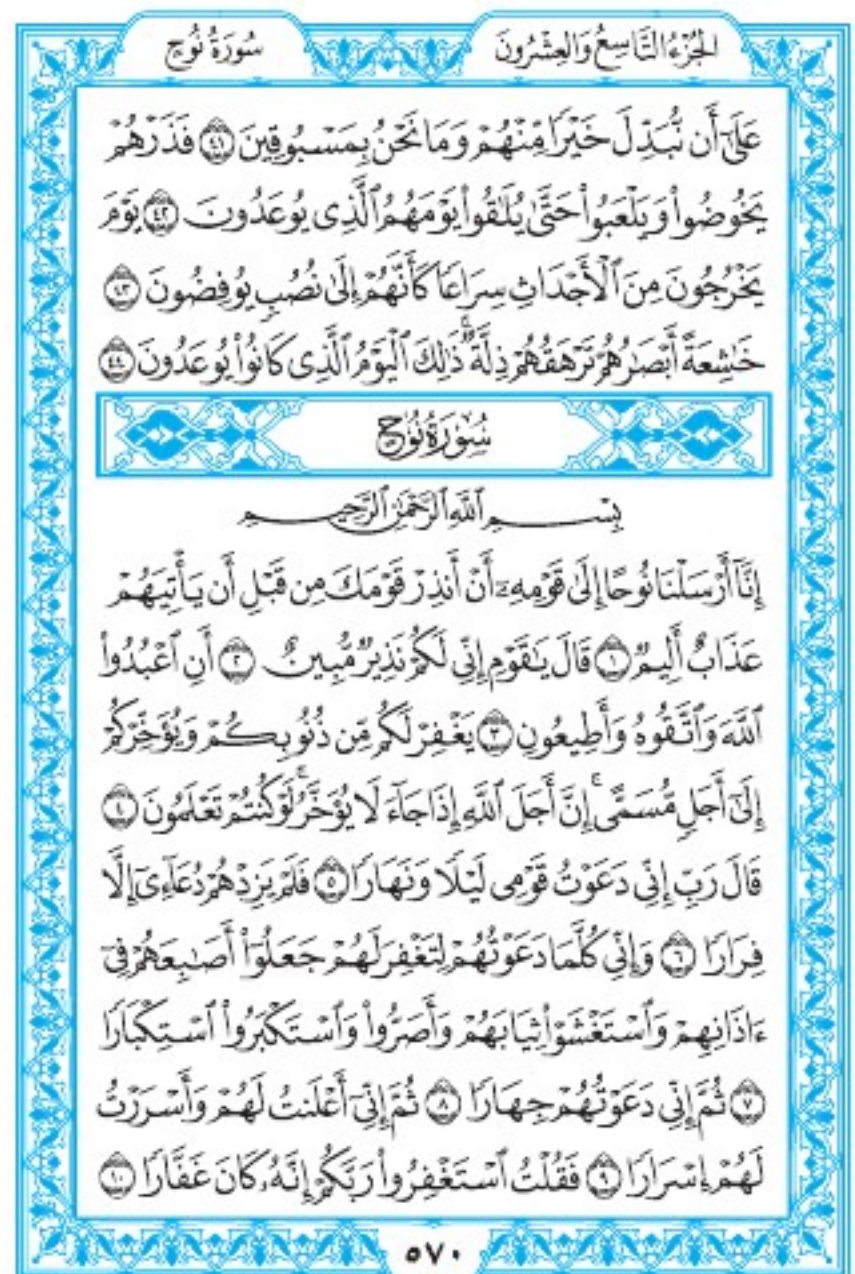 الجُزْءُ التَّاسِعُ وَالعِشْرُونَ سُورَةُ نُوحٍ
عَلَىٰٓ أَن نُّبَدِّلَ خَيْرًا مِّنْهُمْ وَمَا نَحْنُ بِمَسْبُوقِينَ ٤١ فَذَرْهُمْ
يَخُوضُوا۟ وَيَلْعَبُوا۟ حَتَّىٰ يُلَٰقُوا۟ يَوْمَهُمُ ٱلَّذِى يُوعَدُونَ ٤٢ يَوْمَ
يَخْرُجُونَ مِنَ ٱلْأَجْدَاثِ سِرَاعًا كَأَنَّهُمْ إِلَىٰ نُصُبٍ يُوفِضُونَ ٤٣
خَٰشِعَةً أَبْصَٰرُهُمْ تَرْهَقُهُمْ ذِلَّةٌ ۚ ذَٰلِكَ ٱلْيَوْمُ ٱلَّذِى كَانُوا۟ يُوعَدُونَ ٤٤
سُورَةُ نُوحٍ
بِسْمِ ٱللَّهِ ٱلرَّحْمَٰنِ ٱلرَّحِيمِ
إِنَّآ أَرْسَلْنَا نُوحًا إِلَىٰ قَوْمِهِۦٓ أَنْ أَنذِرْ قَوْمَكَ مِن قَبْلِ أَن يَأْتِيَهُمْ
عَذَابٌ أَلِيمٌ ١ قَالَ يَٰقَوْمِ إِنِّى لَكُمْ نَذِيرٌ مُّبِينٌ ٢ أَنِ ٱعْبُدُوا۟
ٱللَّهَ وَٱتَّقُوهُ وَأَطِيعُونِ ٣ يَغْفِرْ لَكُم مِّن ذُنُوبِكُمْ وَيُؤَخِّرْكُمْ
إِلَىٰٓ أَجَلٍ مُّسَمًّى ۚ إِنَّ أَجَلَ ٱللَّهِ إِذَا جَآءَ لَا يُؤَخَّرُ ۖ لَوْ كُنتُمْ تَعْلَمُونَ ٤
قَالَ رَبِّ إِنِّى دَعَوْتُ قَوْمِى لَيْلًا وَنَهَارًا ٥ فَلَمْ يَزِدْهُمْ دُعَآءِىٓ إِلَّا
فِرَارًا ٦ وَإِنِّى كُلَّمَا دَعَوْتُهُمْ لِتَغْفِرَ لَهُمْ جَعَلُوٓا۟ أَصَٰبِعَهُمْ فِىٓ
ءَاذَانِهِمْ وَٱسْتَغْشَوْا۟ ثِيَابَهُمْ وَأَصَرُّوا۟ وَٱسْتَكْبَرُوا۟ ٱسْتِكْبَارًا
٧ ثُمَّ إِنِّى دَعَوْتُهُمْ جِهَارًا ٨ ثُمَّ إِنِّىٓ أَعْلَنتُ لَهُمْ وَأَسْرَرْتُ
لَهُمْ إِسْرَارًا ٩ فَقُلْتُ ٱسْتَغْفِرُوا۟ رَبَّكُمْ إِنَّهُۥ كَانَ غَفَّارًا ١٠
٥٧٠